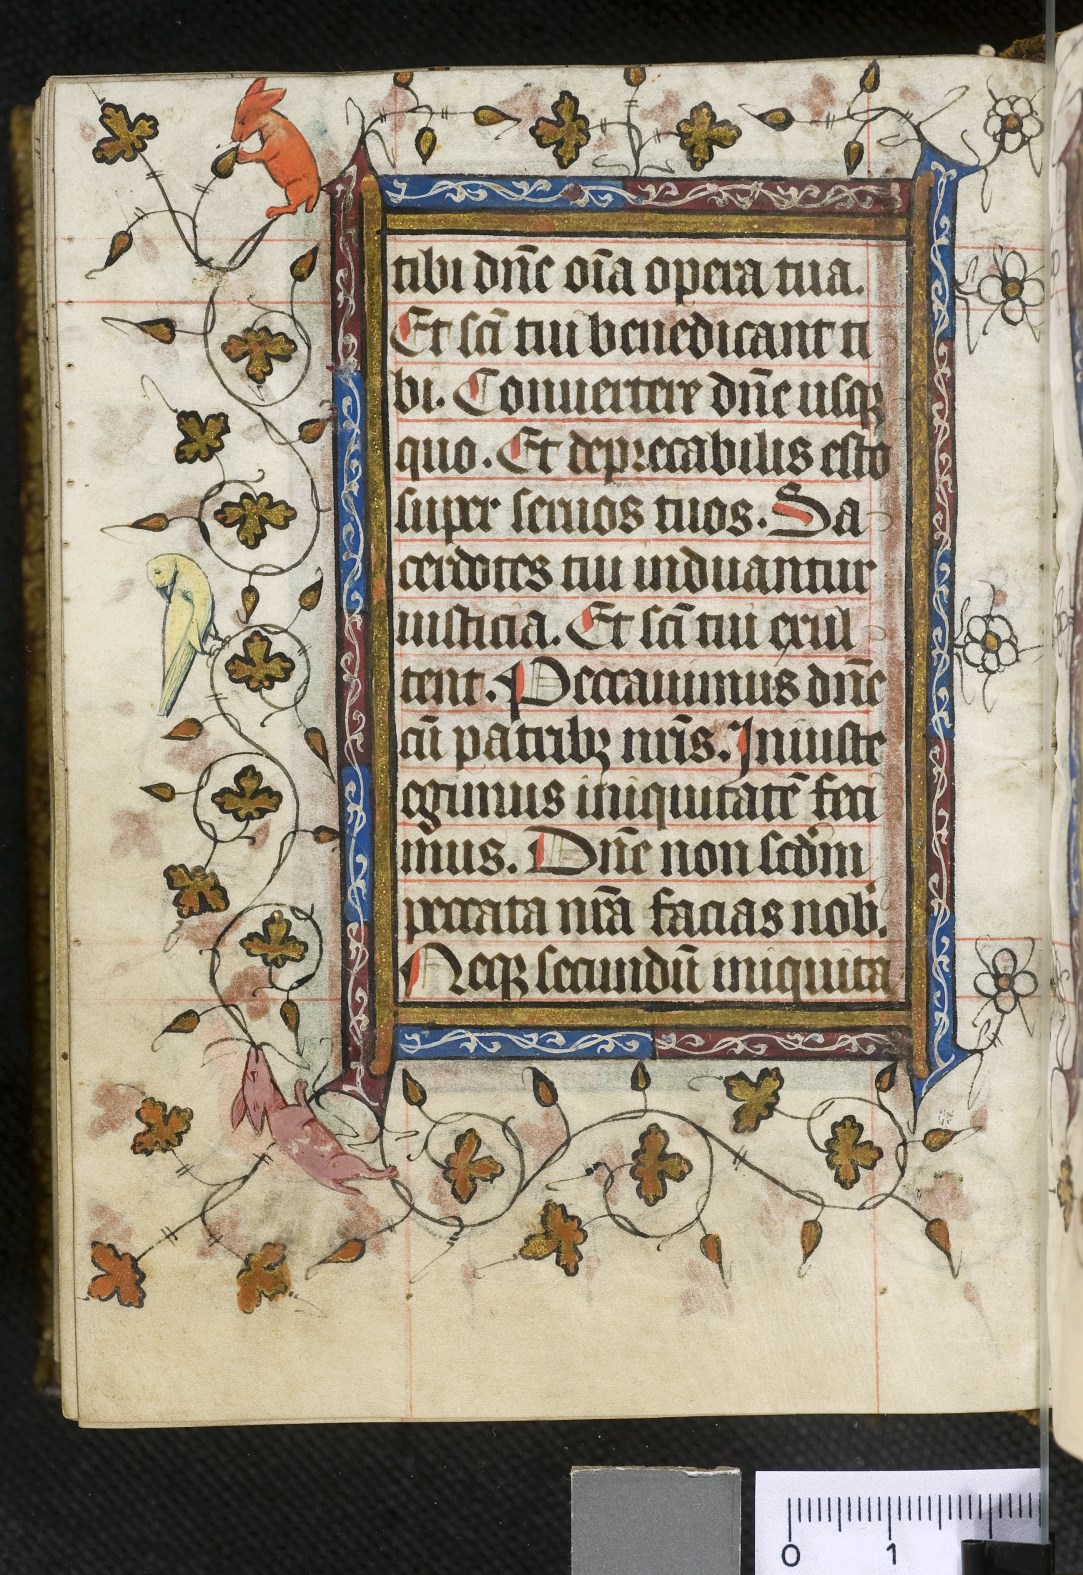 tibi dn̄e oīa opera tua.
Et sc̄i tui benedicant ti
bi. Conuertere dn̄e usqꝫ
quo. Et deprecabilis esto
super seruos tuos. Sa
cerdotes tui induantur
iusticia. Et sc̄i tui exul
tent. Peccauimus dn̄e
cū patribꝫ nr̄is. Iniuste
egimus iniquitatē feci
mus. Dn̄e non scdm̄
peccata nr̄a facias nob̄.
Neqꝫ secundū iniquita
0 1